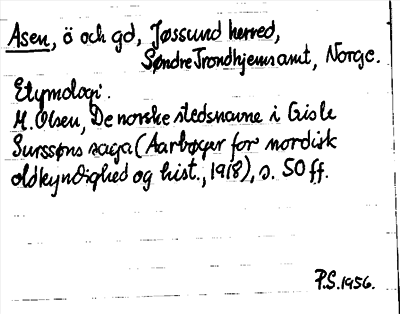 Asen, ö och gd, Jøssund herred,
Søndre Trondhjems amt, Norge.
Etymologi.
M. Olsen, De norske stedsnavne i Gisle
Surssøns saga (Aarbøger for nordisk
oldkyndighed og hist., 1918), s. 50 ff.
P.S. 1956.